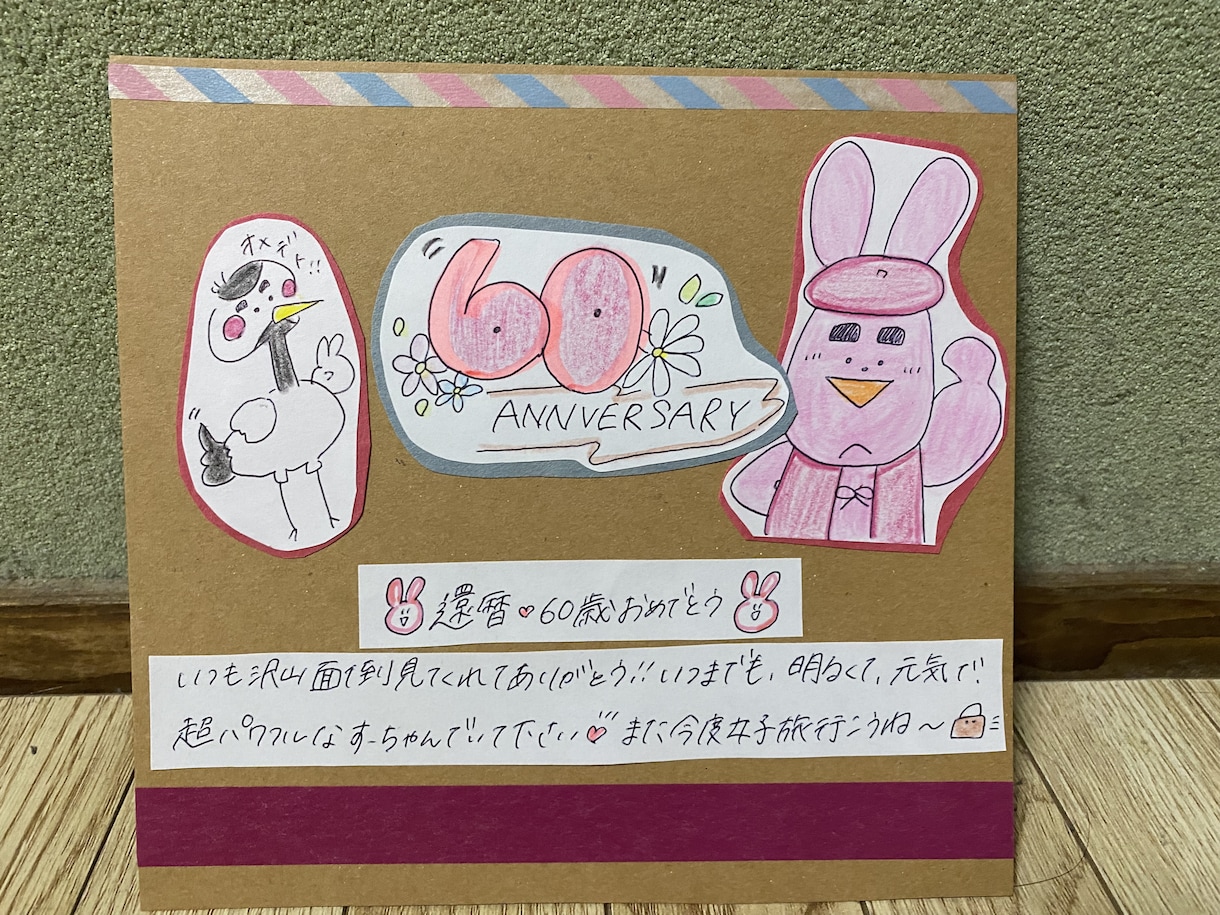 オメデト!!
60
ANNVERSARY
還暦♥60歳おめでとう
いつも沢山面倒見てくれてありがとう!!いつまでも、明るくて、元気で!
超パワフルなすーちゃんでいて下さい♥また今度女子旅行こうね〜